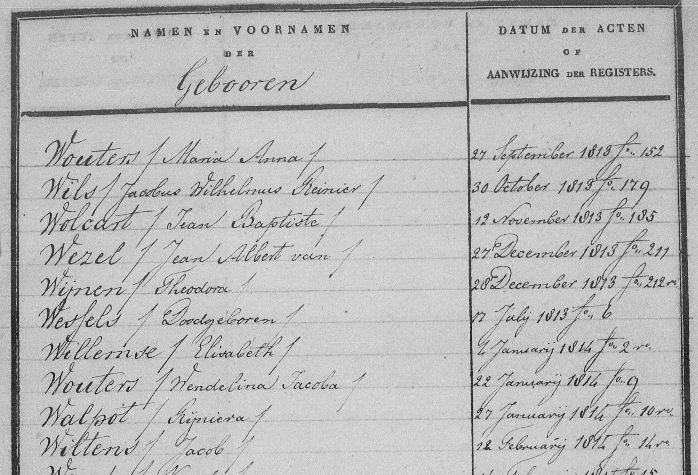 NAMEN EN VOORNAMEN
DER
Gebooren
DATUM DER ACTEN
OF
AANWIJZING DER REGISTERS.
Wouters / Maria Anna / 27 September 1813 fo. 152
Wils / Jacobus Wilhelmus Reinier / 30 October 1813 fo. 179
Wolcart / Jean Baptiste / 12 November 1813 fo. 185
Wezel / Jean Albert van / 27 December 1813 fo. 211
Wijnen / Theodora / 28 December 1813 fo. 212 vo
Wessels / Doodgeboren / 17 Julij 1813 fo. 6
Willemse / Elisabeth / 4 Januarij 1814 fo. 2 vo
Wouters / Wendelina Jacoba / 22 Januarij 1814 fo. 9
Walpot / Rijniera / 27 Januarij 1814 fo. 10 vo
Wiltens / Jacob / 12 Februarij 1814 fo. 14 vo